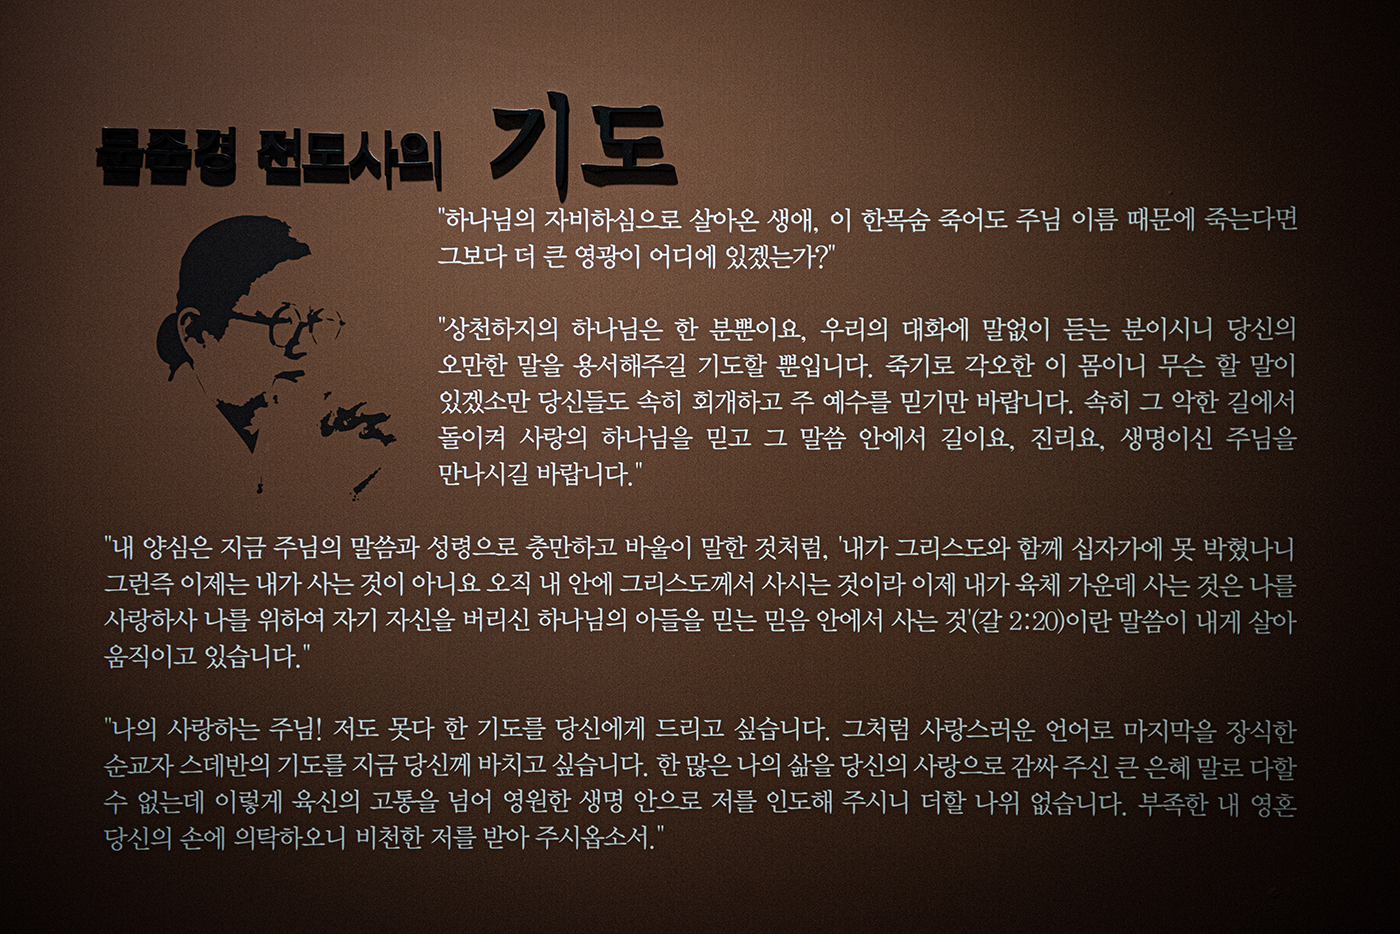 문준경 전도사의 기도
"하나님의 자비하심으로 살아온 생애, 이 한목숨 죽어도 주님 이름 때문에 죽는다면
그보다 더 큰 영광이 어디에 있겠는가?"
"상천하지의 하나님은 한 분뿐이요, 우리의 대화에 말없이 듣는 분이시니 당신의
오만한 말을 용서해주길 기도할 뿐입니다. 죽기로 각오한 이 몸이니 무슨 할 말이
있겠소만 당신들도 속히 회개하고 주 예수를 믿기만 바랍니다. 속히 그 악한 길에서
돌이켜 사랑의 하나님을 믿고 그 말씀 안에서 길이요, 진리요, 생명이신 주님을
만나시길 바랍니다."
"내 양심은 지금 주님의 말씀과 성령으로 충만하고 바울이 말한 것처럼, '내가 그리스도와 함께 십자가에 못 박혔나니
그런즉 이제는 내가 사는 것이 아니요 오직 내 안에 그리스도께서 사시는 것이라 이제 내가 육체 가운데 사는 것은 나를
사랑하사 나를 위하여 자기 자신을 버리신 하나님의 아들을 믿는 믿음 안에서 사는 것'(갈 2:20)이란 말씀이 내게 살아
움직이고 있습니다."
"나의 사랑하는 주님! 저도 못다 한 기도를 당신에게 드리고 싶습니다. 그처럼 사랑스러운 언어로 마지막을 장식한
순교자 스데반의 기도를 지금 당신께 바치고 싶습니다. 한 많은 나의 삶을 당신의 사랑으로 감싸 주신 큰 은혜 말로 다할
수 없는데 이렇게 육신의 고통을 넘어 영원한 생명 안으로 저를 인도해 주시니 더할 나위 없습니다. 부족한 내 영혼
당신의 손에 의탁하오니 비천한 저를 받아 주시옵소서."